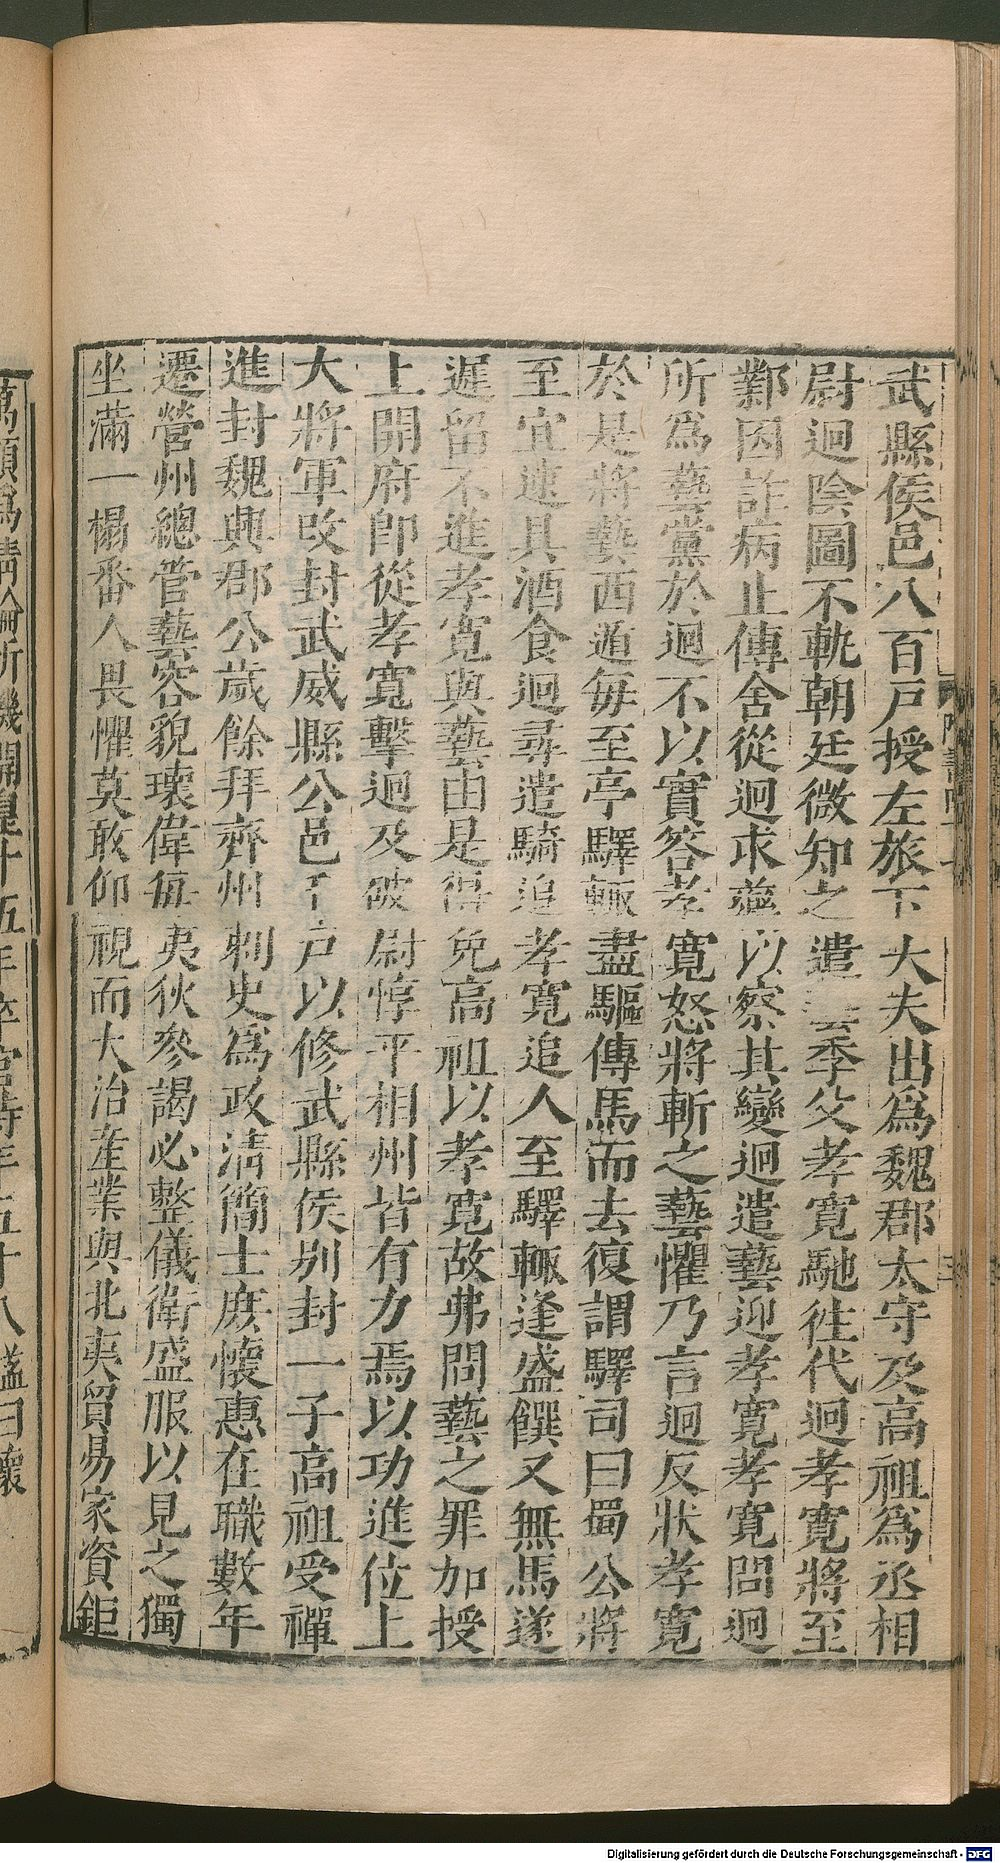 武縣侯邑八百戸授左旅下大夫出爲魏郡太守及高祖爲丞相
尉迥陰圖不軌朝廷微知之遣藝季父孝寛馳徃代迥孝寛將至
鄴因詐病止傳舎從迥求藥以察其變迥遣藝迎孝寛孝寛問迥
所爲藝黨於迥不以實答孝寛怒將斬之藝懼乃言迥反狀孝寛
於是將藝西遁毎至亭驛輒盡驅傳馬而去復謂驛司曰蜀公將
至宜速具酒食迥尋遣騎追孝寛追人至驛輒逢盛饌又無馬遂
遲留不進孝寛與藝由是得免高祖以孝寛故弗問藝之罪加授
上開府即從孝寛擊迥及破尉惇平相州皆有力焉以功進位上
大將軍改封武威縣公邑千戸以修武縣侯別封一子高祖受禪
進封魏興郡公歳餘拜齊州刺史爲政清簡士庶懷惠在職數年
遷營州總管藝容貌瓌偉毎夷狄參謁必整儀衛盛服以見之獨
坐滿一榻番人畏懼莫敢仰視而大治産業與北夷貿易家資鉅
萬頗爲清論所譏開皇十五年卒官時年五十八謚曰懷
Digitalisierung gefördert durch die Deutsche Forschungsgemeinschaft - DFG